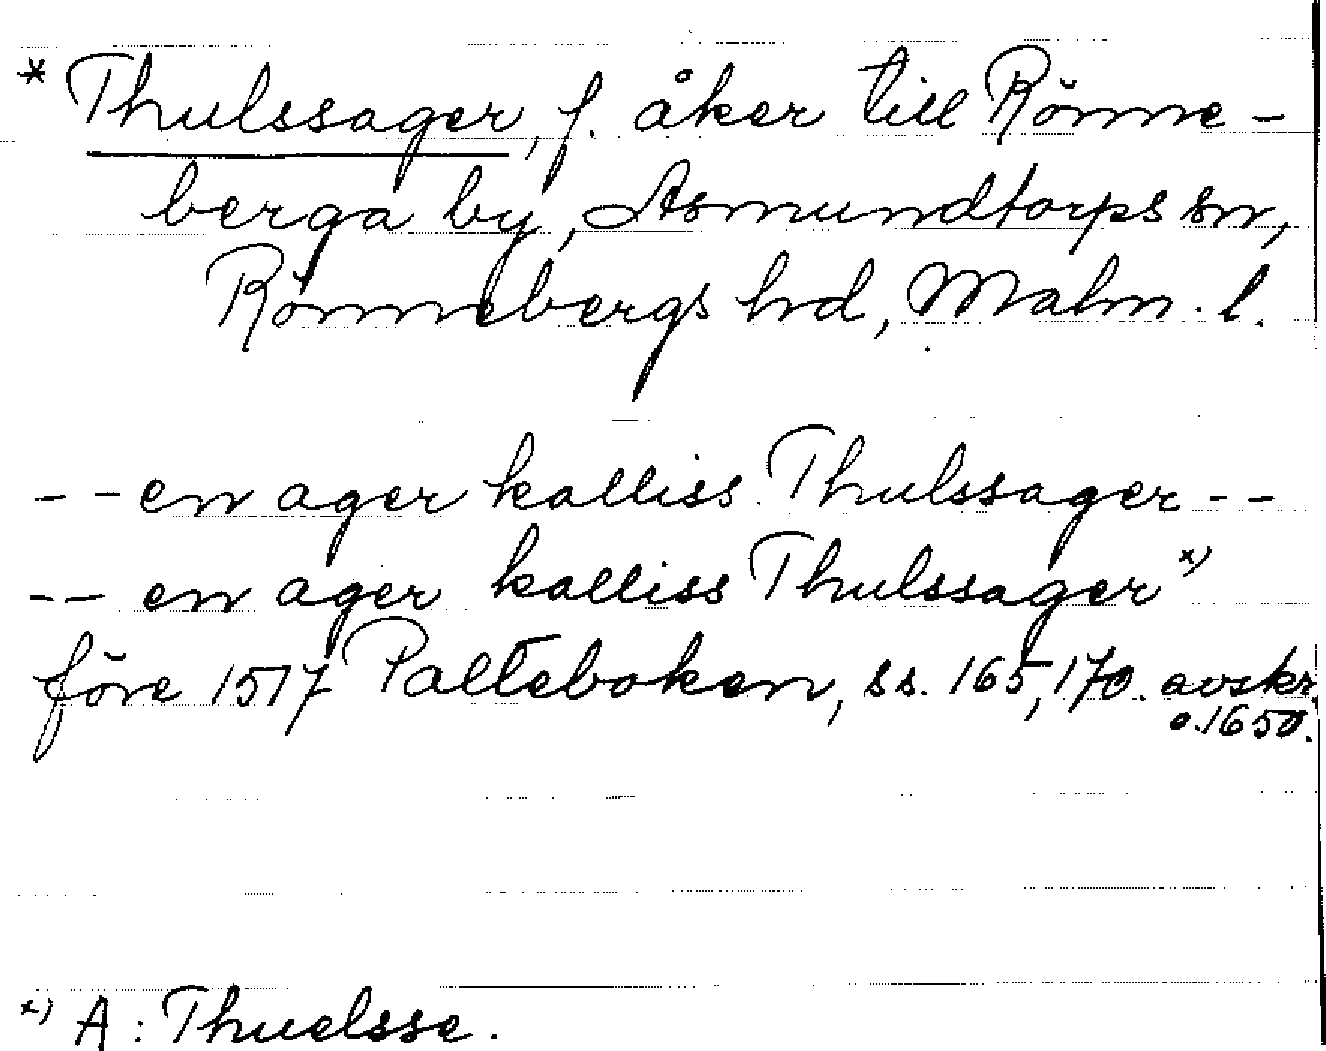 * Thulssager, f. åker till Rönne-
berga by, Asmundtorps sn,
Rönnebergs hd, Malm. l.
- - en ager kalliss Thulssager - -
- - en ager kalliss Thulssager *)
före 1517 Palteboken, ss. 165, 170. avskr.
o. 1650.
*) A: Thuelsse.